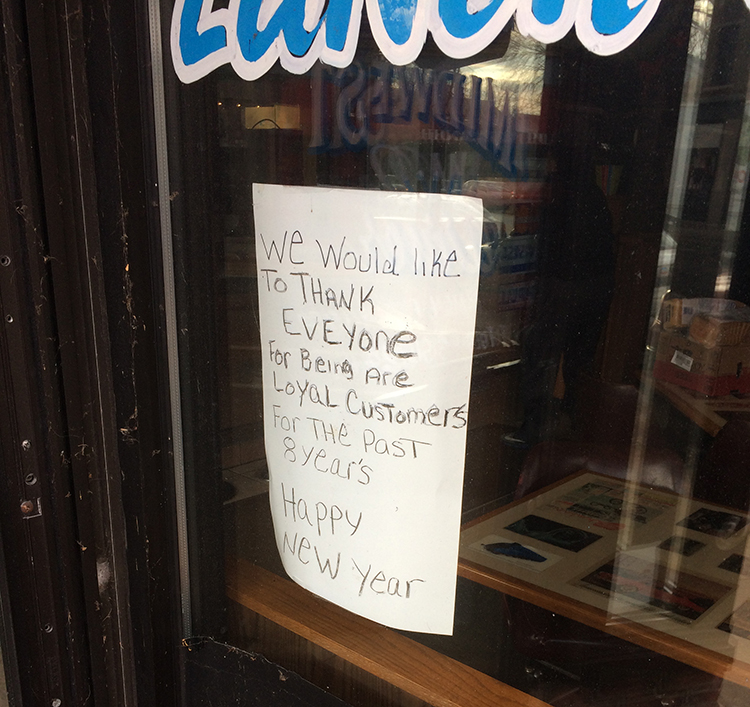 Lunch
MIDWEST
We Would like
To THANK
EVEYone
For Being Are
Loyal Customers
For THe Past
8 year's
Happy
New Year